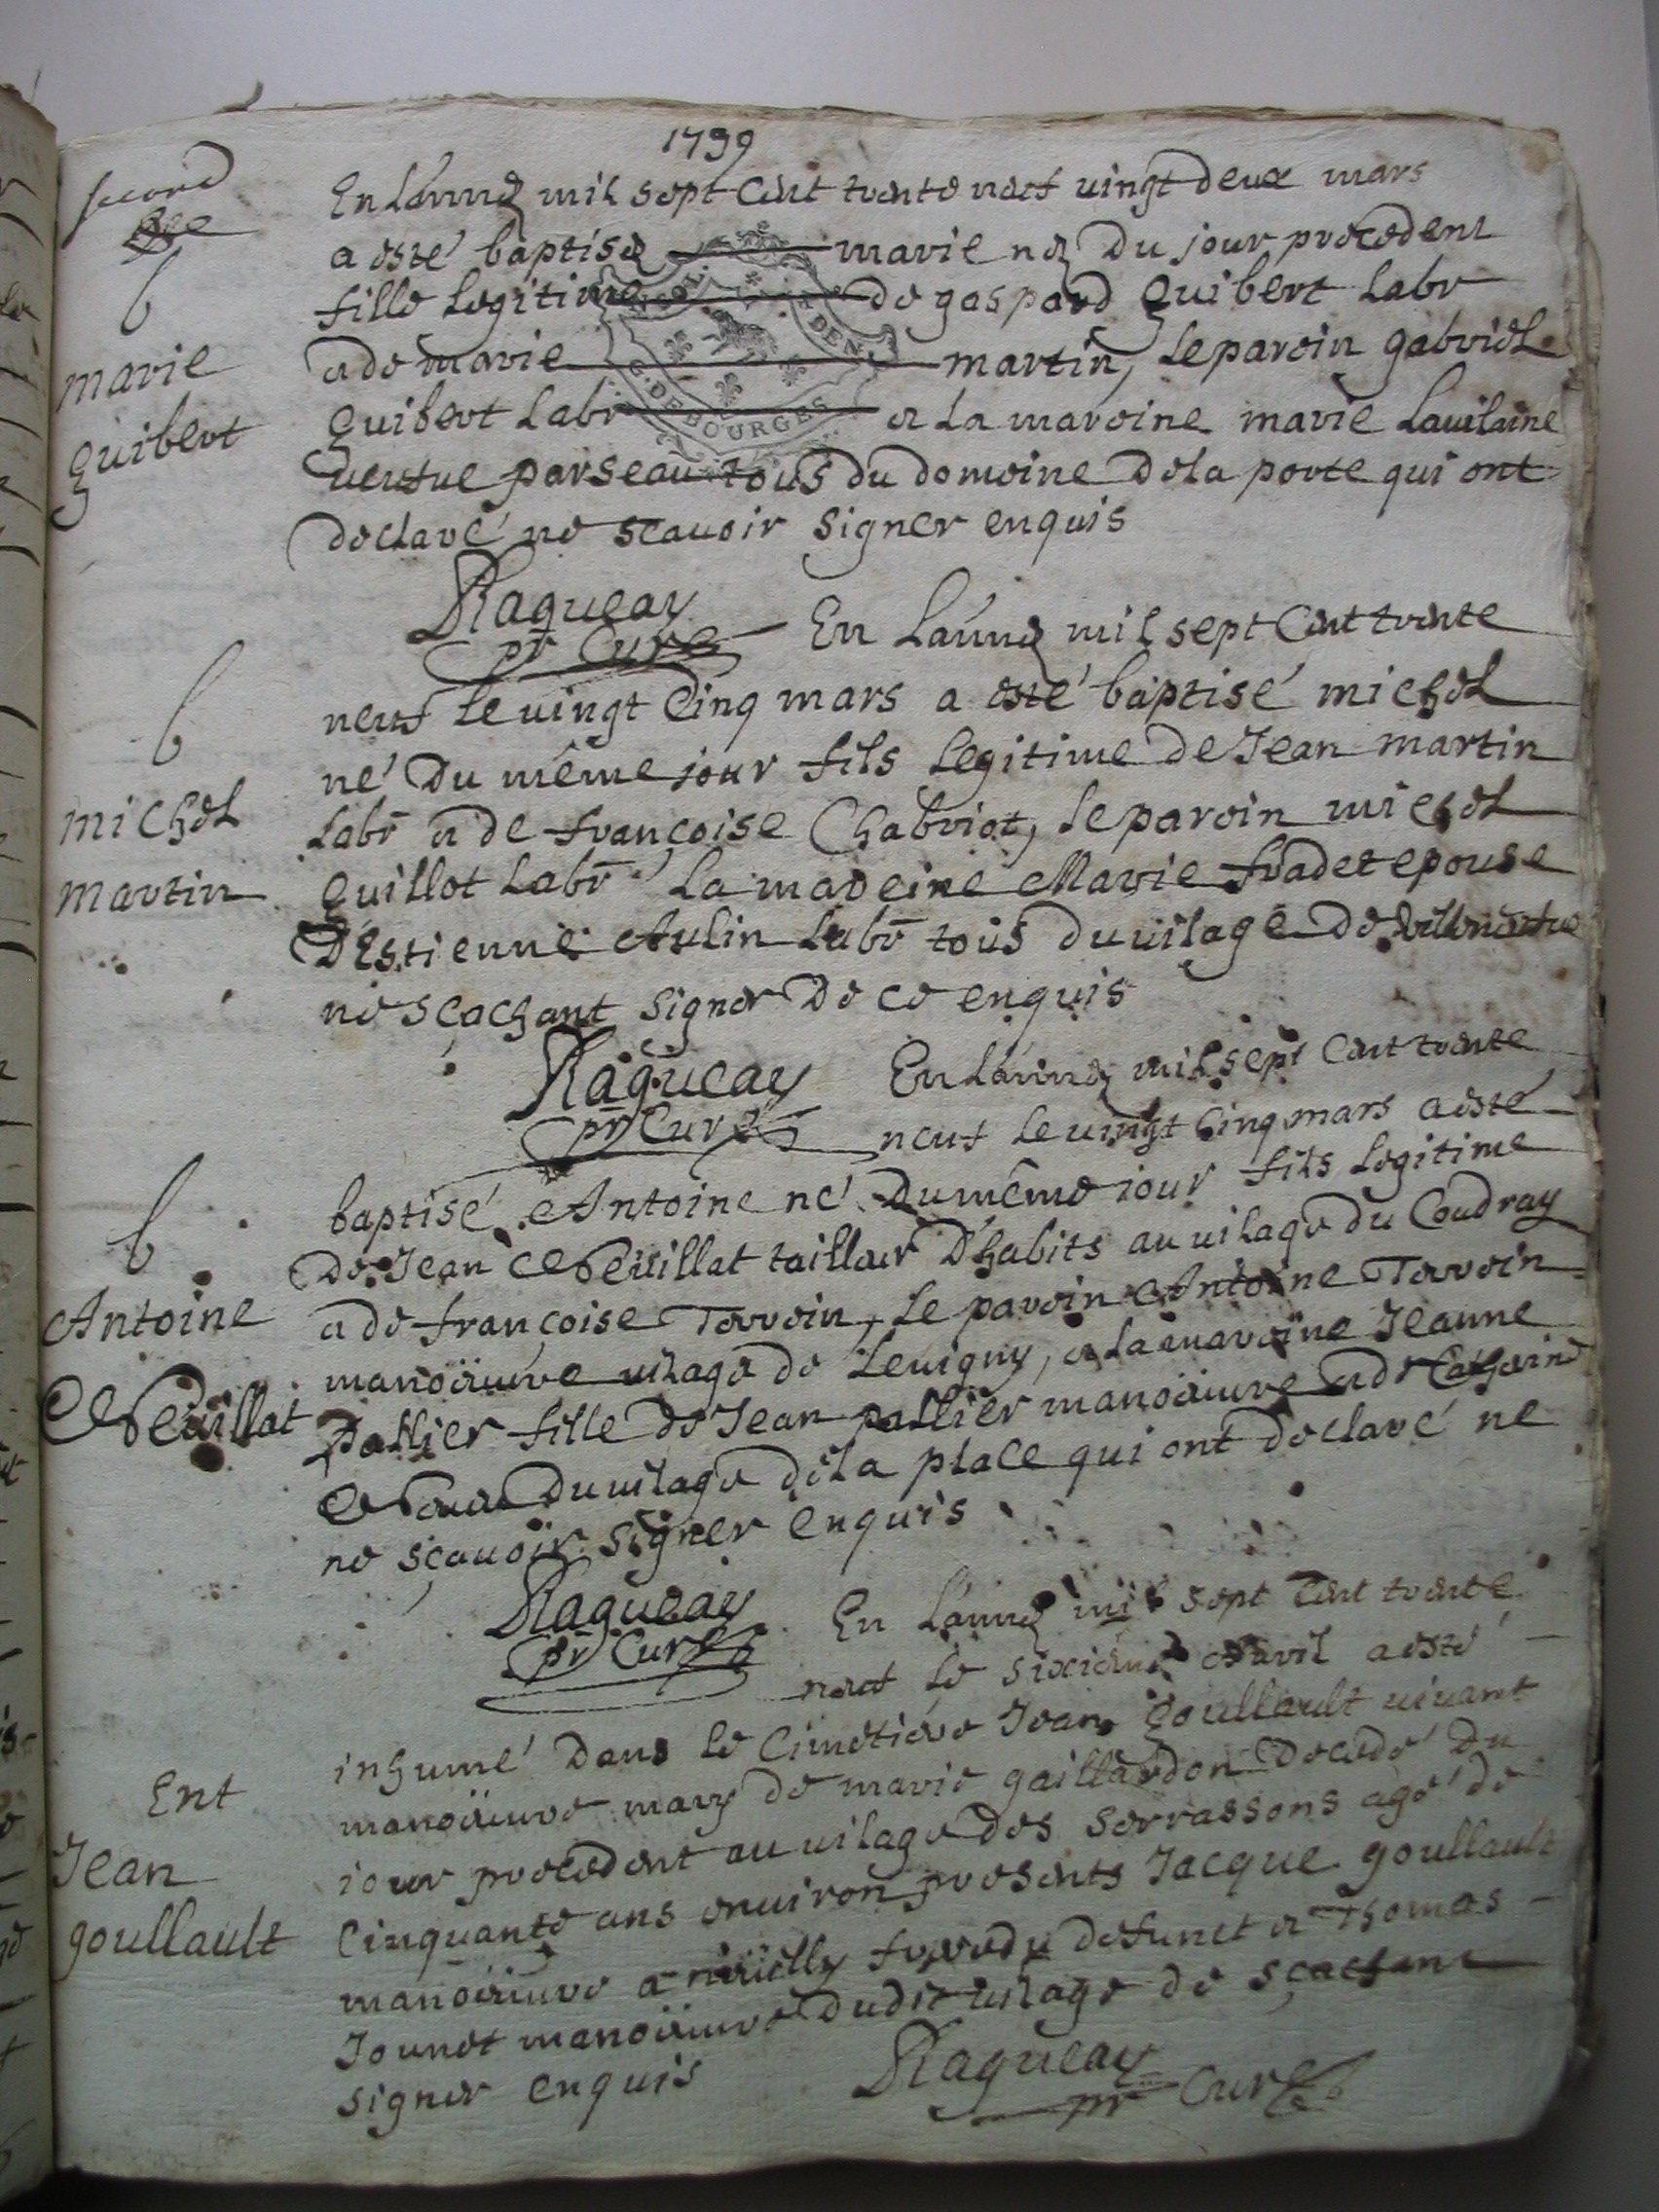 1739
second
En L'année mil sept Cent trente neuf vingt deux mars
a esté baptisée marie née Du jour precedent
b
fille Legitime de gaspard guibert Labr
marie
et de marie martin, Le paroin gabriel
guibert
guibert Labr et La maroine marie
veufue parseau tous du domoine De la porte qui ont
declaré ne scauoir signer enquis
Ragueau
pr Curé
En L'année mil sept Cent trente
b
neuf Le vingt Cinq mars a esté baptisé michel
né Du même jour fils Legitime de Jean martin
michel
Labr et de françoise Chabriot, Le paroin michel
martin
guillot Labr La mareine Marie fradet epouse
D'Estienne Aulin Labr tous du vilage de
ne scachant signer De ce enquis
Ragueau
pr Curé
En L'année mil sept Cent trente
neuf Le vingt Cinq mars a esté
b
baptisé Antoine né Du même jour fils Legitime
De Jean Peüillat tailleur D'habits au vilage du Coudray
Antoine
et de françoise Terroin, Le paroin Antoine Terroin
Peüillat
manoeuure vilage de Leuigny, et La maroine Jeanne
pallier fille de Jean pallier manoeuure et de Catherine
Du vilage de La place qui ont declaré ne
ne scauoir signer enquis
Ragueau
pr Curé
En L'année mil sept Cent trente
neuf Le sixieme Avril a esté
Ent
inhumé Dans Le Cimetiere Jean goullault viuant
manoeuure mary de marie gaillardon Decedé Du
Jean
jour precedent au vilage des serrassons agé de
goullault
Cinquante ans enuiron presents Jacque goullault
manoeuure a frere du defunct et Thomas
Jounet manoeuure Dudit vilage de scachant
signer enquis
Ragueau
pr Curé